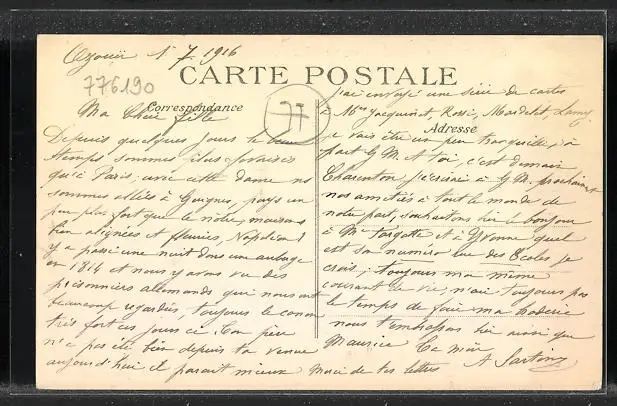 Ozouir 1 7 1916
CARTE POSTALE
776190
Correspondance
77
Adresse
Ma Chère fille
Depuis quelques jours le beau
temps sommes plus favorisés
qu'à Paris; avec cette dame ns
sommes allées à Guignes, pays un
peu plus fort que le nôtre, maisons
bien alignées et fleuries, Napoléon I
y a passé une nuit dans une auberge
en 1814 et nous y avons vu des
prisonniers allemands qui nous ont
beaucoup regardés, toujours le canon
très fort ces jours ci. Ton père
n'a pas été bien depuis ta venue
aujourd'hui il parait mieux Merci de tes lettres
j'ai envoyé une série de cartes
à Mmes Jacquinot, Rossi, Mardelet, Lamy
je vais être un peu tranquille, à
part G M. A toi, c'est demain
Charenton j'écrirai à G M. prochainet
nos amitiés à tout le monde de
notre part, souhaitons bien le bonjour
à Me Fargotte et à Yvonne quel
est son numéro rue des Ecoles, je
crois; toujours ma même
courant de vie, n'ai toujours pas
le temps de faire ma broderie
nous t'embrassons bien ainsi que
Maurice Ta mère
A Sartiny